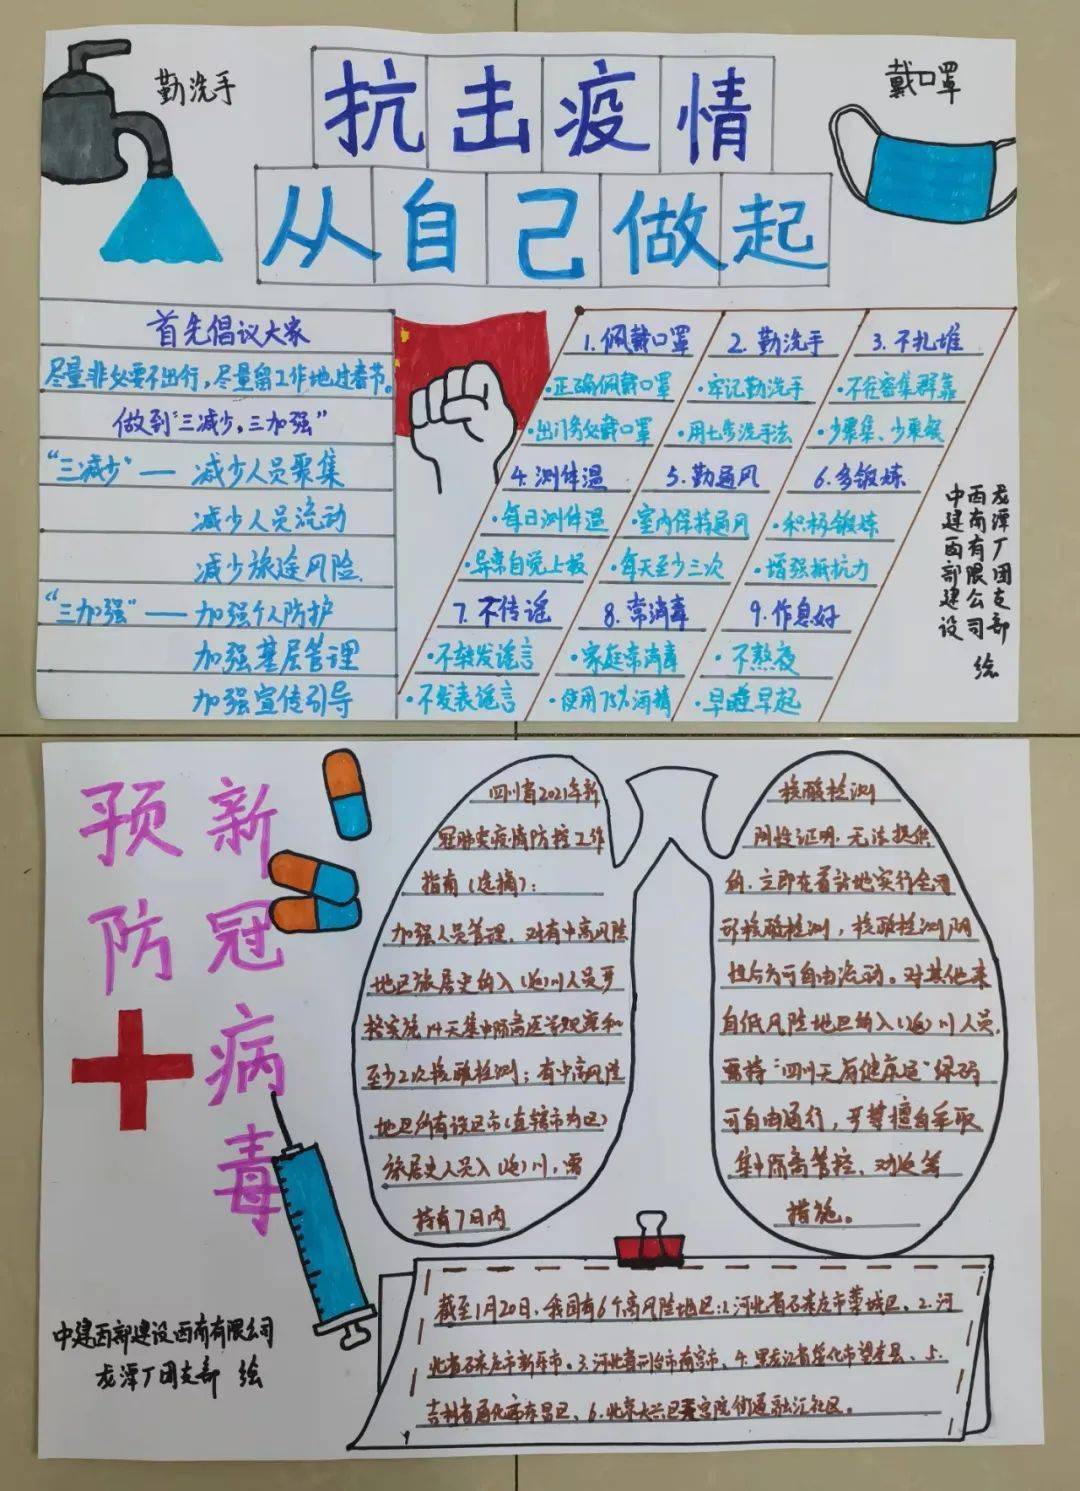 勤洗手
抗击疫情
从自己做起
戴口罩
首先倡议大家
尽量非必要不出行，尽量留工作地过春节。
做到"三减少，三加强"
"三减少"—— 减少人员聚集
减少人员流动
减少旅途风险.
"三加强"—— 加强个人防护
加强基层管理
加强宣传引导
1. 佩戴口罩
·正确佩戴口罩
·出门务必戴口罩
2. 勤洗手
·牢记勤洗手
·用七步洗手法
3. 不扎堆
·不在密集群靠
·少聚集、少聚餐
4. 测体温
·每日测体温
·异常自觉上报
5. 勤通风
·室内保持通风
·每天至少三次
6. 多锻炼
·积极锻炼
·增强抵抗力
7. 不传谣
·不转发谣言
·不发表谣言
8. 常消毒
·家庭常消毒
·使用75%酒精
9. 作息好
·不熬夜
·早睡早起
中建西部建设
西南有限公司
龙潭厂团支部
绘
预防
新冠病毒
四川省2021年新
冠肺炎疫情防控工作
指南（选摘）：
加强人员管理、对有中高风险
地区旅居史的入（返）川人员严
格实施14天集中隔离医学观察和
至少2次核酸检测；有中高风险
地区所有设区市（直辖市为区）
旅居史人员入（返）川，需
持有7日内
核酸检测
阴性证明. 无法提供
的，立即在首站地实行全
核酸检测，核酸检测阴
性后方可自由流动。对其他来
自低风险地区的入（返）川人员，
需持"四川天府健康通"绿码
可自由通行，严禁擅自采取
集中隔离管控、劝返等
措施。
截至1月20日，我国有6个高风险地区：1.河北省石家庄市藁城区、2.河
北省石家庄市新乐市。3.河北省邢台市南宫市、4.黑龙江省绥化市望奎县、5.
吉林省通化市东昌区、6.北京大兴区天宫院街道融汇社区。
中建西部建设西南有限公司
龙潭厂团支部 绘